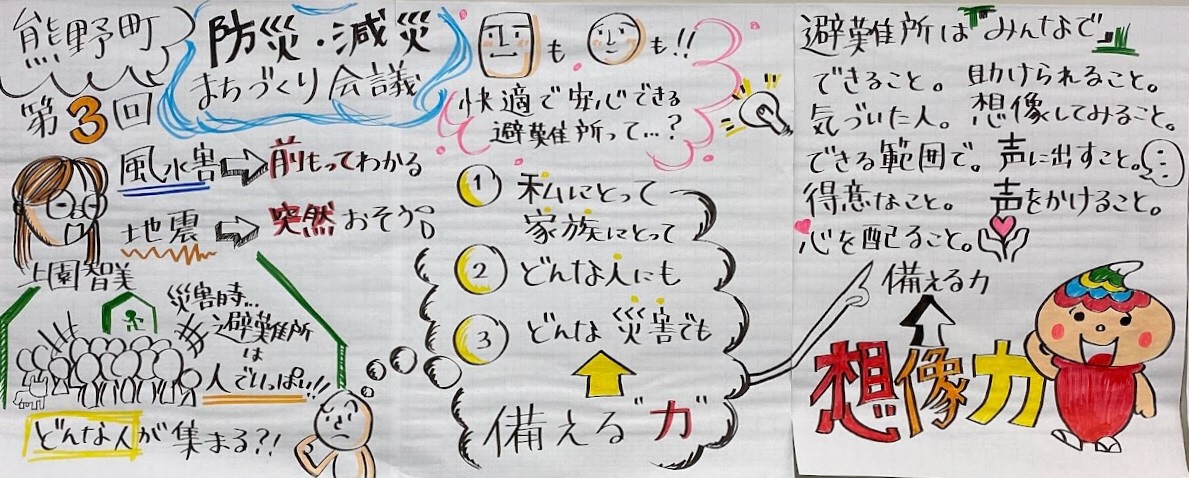 熊野町
防災・減災
まちづくり会議
第3回
風水害⇨前もってわかる
地震⇨突然おそう。
上園智美
災害時…
避難所
は
人でいっぱい!!
どんな人が集まる?!
も も!!
快適で安心できる
避難所って…?
① 私にとって
家族にとって
② どんな人にも
③ どんな災害でも
備える"力"
避難所は『みんなで』
できること。助けられること。
気づいた人。想像してみること。
できる範囲で。声に出すこと。
得意なこと。声をかけること。
心を配ること。
備える力
想像力